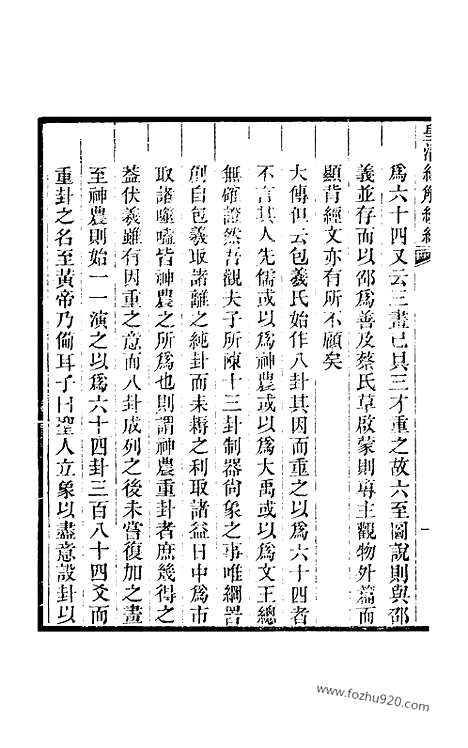 皇清經解續編
為六十四又云三畫已具三才重之故六至圖說則與邵
義並存而以邵為善及蔡氏草啟蒙則專主觀物外篇而
顯背經文亦有所不顧矣
大傳但云包羲氏始作八卦其因而重之以為六十四者
不言其人先儒或以為神農或以為大禹或以為文王總
無確證然吾觀夫子所陳十三卦制器尚象之事唯網罟
創自包羲取諸離之純卦而耒耨之利取諸益日中為市
取諸噬嗑皆神農之所為也則謂神農重卦者庶幾得之
蓋伏羲雖有因重之意而八卦成列之後未嘗復加之畫
至神農則始一一演之以為六十四卦三百八十四爻而
重卦之名至黃帝乃備耳子曰聖人立象以盡意設卦以
www.fozhu920.com